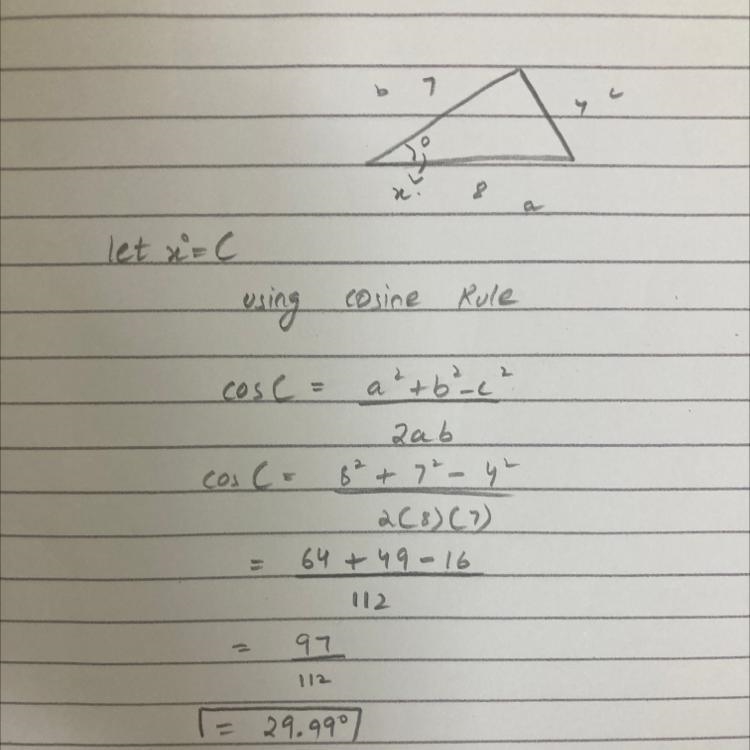 b 7
4 c
x°
8
a
let x° = C
using cosine Rule
cos C = a² + b² - c²
2ab
cos C = 8² + 7² - 4²
2(8)(7)
= 64 + 49 - 16
112
= 97
112
= 29.99°